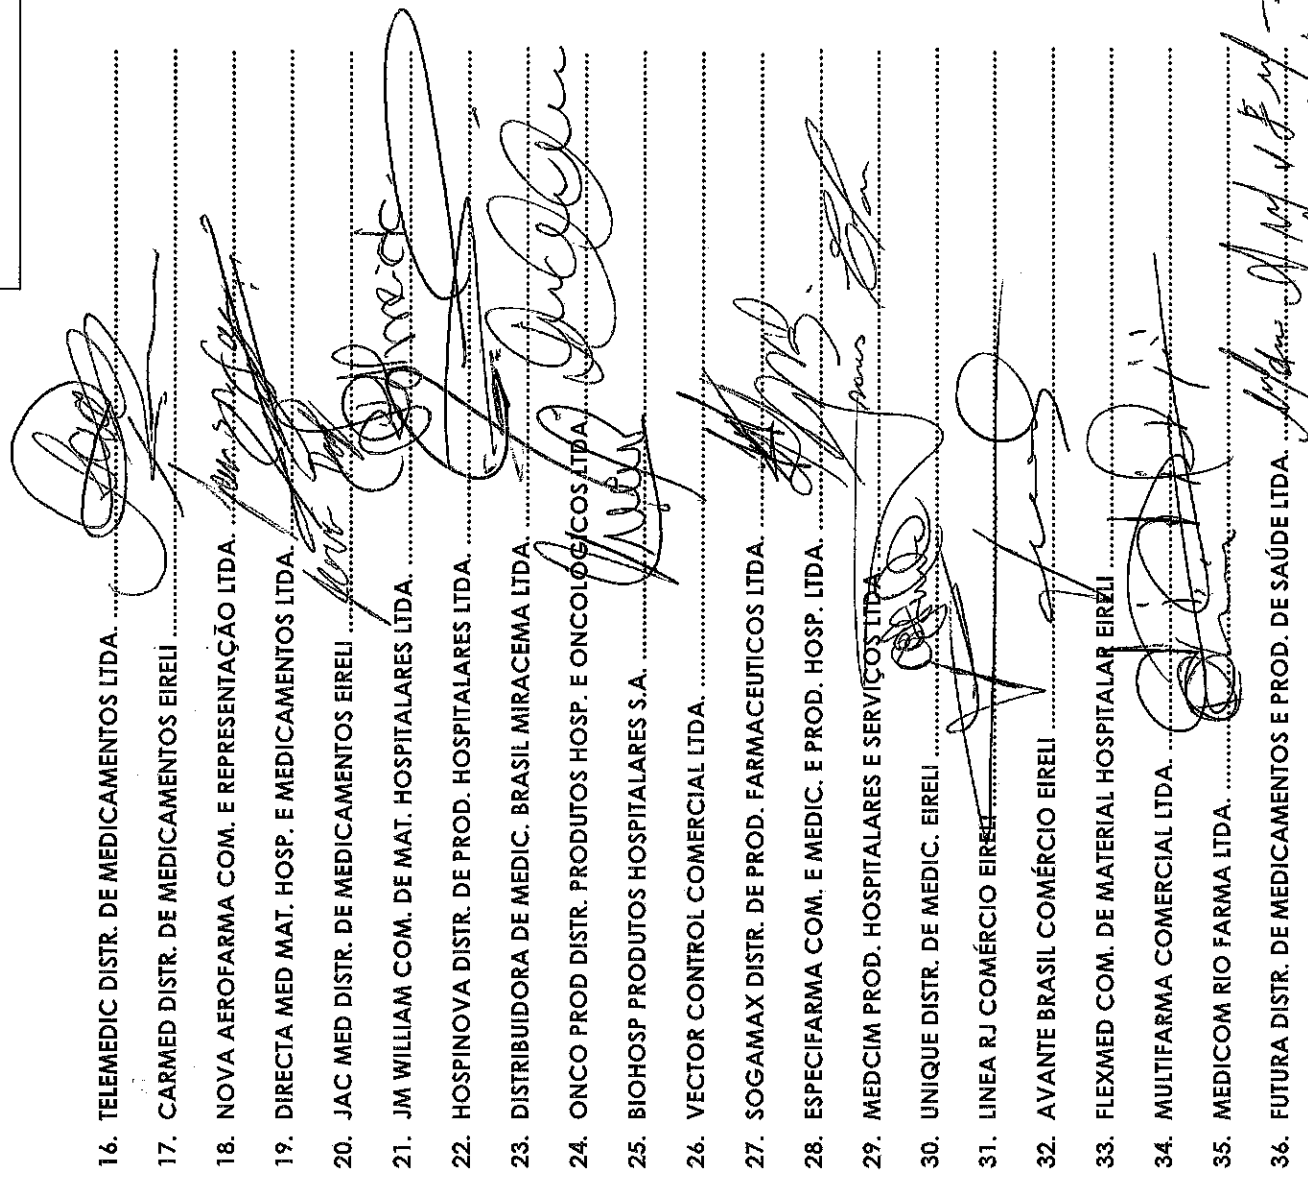 16. TELEMEDIC DISTR. DE MEDICAMENTOS LTDA.
17. CARMED DISTR. DE MEDICAMENTOS EIRELI
18. NOVA AEROFARMA COM. E REPRESENTAÇÃO LTDA.
19. DIRECTA MED MAT. HOSP. E MEDICAMENTOS LTDA.
20. JAC MED DISTR. DE MEDICAMENTOS EIRELI
21. JM WILLIAM COM. DE MAT. HOSPITALARES LTDA.
22. HOSPINOVA DISTR. DE PROD. HOSPITALARES LTDA.
23. DISTRIBUIDORA DE MEDIC. BRASIL MIRACEMA LTDA.
24. ONCO PROD DISTR. PRODUTOS HOSP. E ONCOLOGICOS LTDA
25. BIOHOSP PRODUTOS HOSPITALARES S.A.
26. VECTOR CONTROL COMERCIAL LTDA.
27. SOGAMAX DISTR. DE PROD. FARMACEUTICOS LTDA.
28. ESPECIFARMA COM. E MEDIC. E PROD. HOSP. LTDA.
29. MEDCIM PROD. HOSPITALARES E SERVIÇOS LTDA
30. UNIQUE DISTR. DE MEDIC. EIRELI
31. LINEA RJ COMÉRCIO EIRELI
32. AVANTE BRASIL COMÉRCIO EIRELI
33. FLEXMED COM. DE MATERIAL HOSPITALAR EIRELI
34. MULTIFARMA COMERCIAL LTDA.
35. MEDICOM RIO FARMA LTDA.
36. FUTURA DISTR. DE MEDICAMENTOS E PROD. DE SAÚDE LTDA.